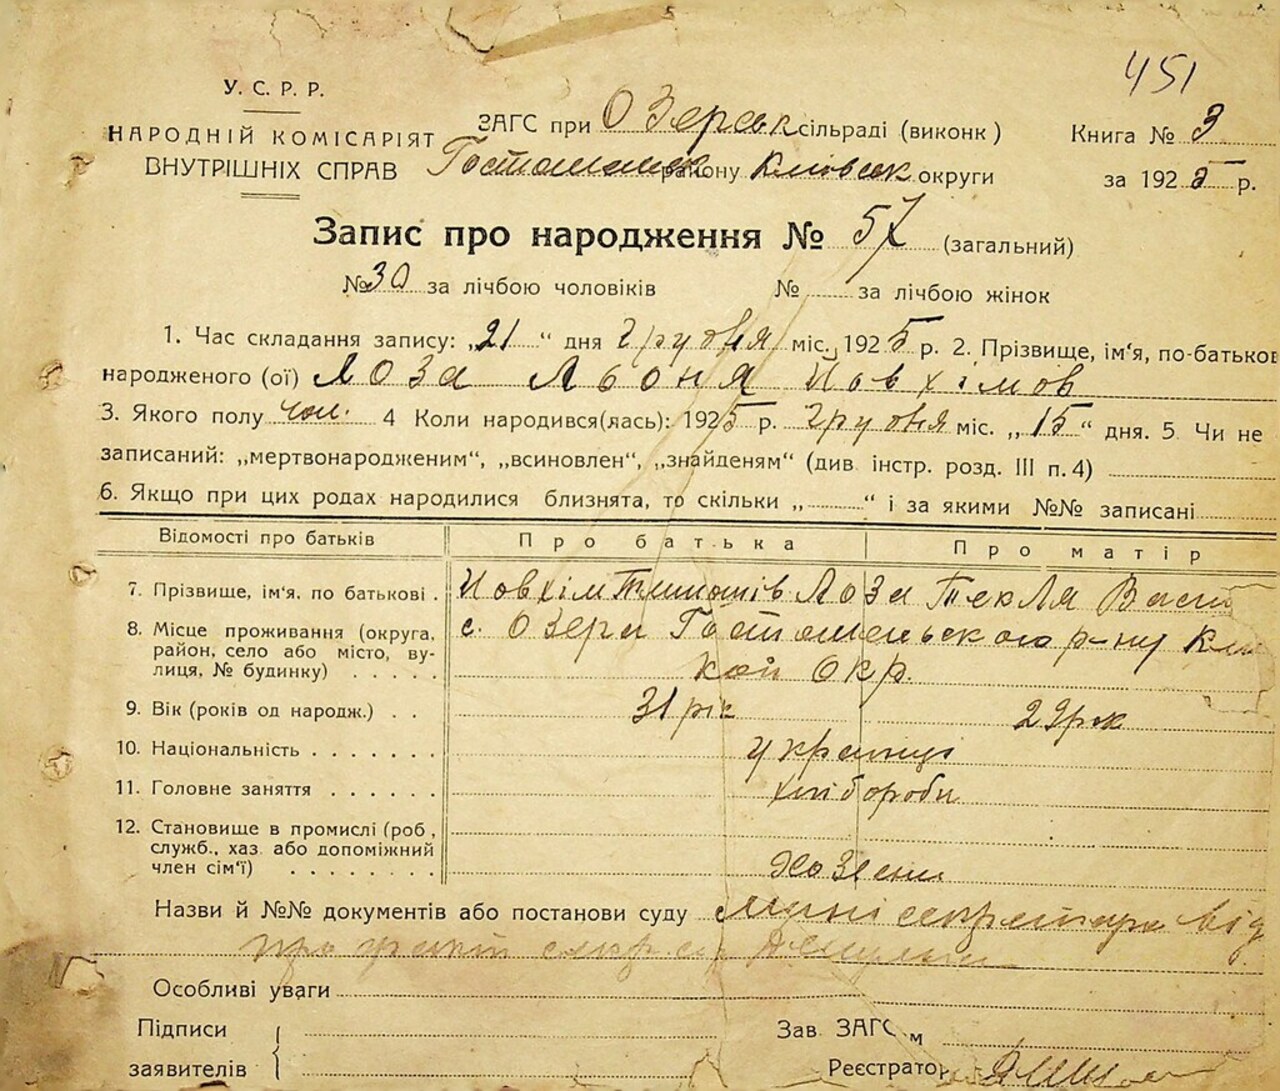 451
У. С. Р. Р.
НАРОДНІЙ КОМІСАРІЯТ
ВНУТРІШНІХ СПРАВ
ЗАГС при Озерськ сільраді (виконк )
Гостомельск району Київськ округи
Книга № 3
за 1925 р.
Запис про народження № 57 (загальний)
№ 30 за лічбою чоловіків № за лічбою жінок
1. Час складання запису: „21“ дня грудня міс. 1925 р. 2. Прізвище, ім'я, по-батькові
народженого (ої) Лоза Льоня Йовхімов
3. Якого полу чол. 4 Коли народився(лась): 1925 р. грудня міс. „15“ дня. 5. Чи не
записаний: „мертвонародженим“, „всиновлен“, „знайденям“ (див інстр. розд. III п. 4)
6. Якщо при цих родах народилися близнята, то скільки „ “ і за якими №№ записані
Відомості про батьків Про батька Про матір
7. Прізвище, ім'я, по батькові . Йовхім Тимошів Лоза Текля Васи
8. Місце проживання (округа, район, село або місто, вулиця, № будинку) . . . . . с. Озери Гостомельського р-ну Ки
кой Окр.
9. Вік (років од народж.) . . 31 рік 29 рок
10. Національність . . . . . . . українці
11. Головне заняття . . . . . . хлібороби
12. Становище в промислі (роб , служб., хаз або допоміжний член сім'ї) . . . . . . . . Хозяени
Назви й №№ документів або постанови суду секретаря від
Особливі уваги
Підписи
заявителів
Зав ЗАГС м
Реєстратор